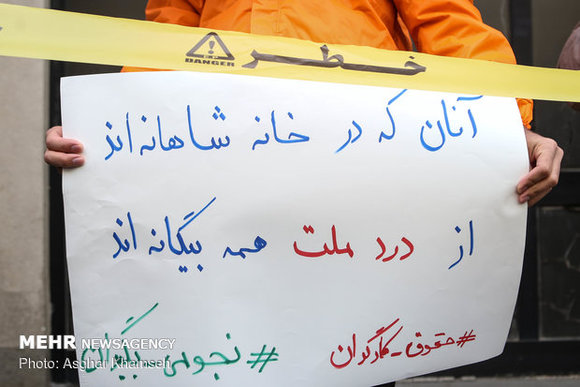 خطر
DANGER
آنان که در خانه شاهانه‌اند
از درد ملت همه بیگانه‌اند
#حقوق-کارگران
#نجومی بگیران
MEHR NEWSAGENCY
Photo: Asghar Khamseh